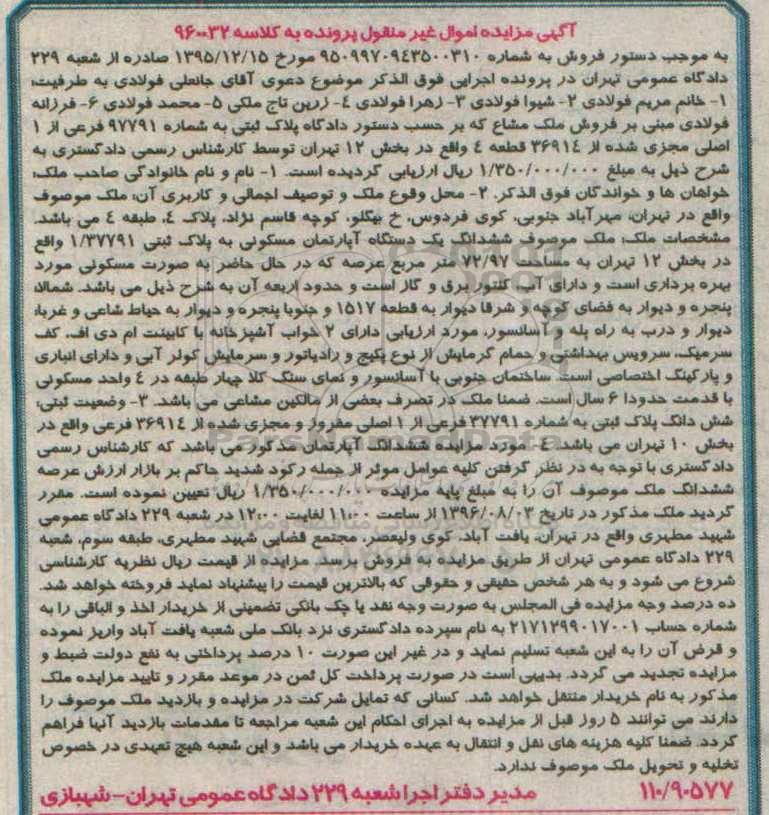 آگهی مزایده اموال غیر منقول پرونده به کلاسه ۹۶۰۰۳۲
به موجب دستور فروش به شماره ۹۵۰۹۹۷۰۹۴۳۵۰۰۳۱۰ مورخ ۱۳۹۵/۱۲/۱۵ صادره از شعبه ۲۲۹
دادگاه عمومی تهران در پرونده اجرایی فوق الذکر موضوع دعوی آقای جانعلی فولادی به طرفیت:
۱- خانم مریم فولادی ۲- شیوا فولادی ۳- زهرا فولادی ۴- زرین تاج ملکی ۵- محمد فولادی ۶- فرزانه
فولادی مبنی بر فروش ملک مشاع که بر حسب دستور دادگاه پلاک ثبتی به شماره ۹۷۷۹۱ فرعی از ۱
اصلی مجزی شده از ۳۶۹۱۴ قطعه ۴ واقع در بخش ۱۲ تهران توسط کارشناس رسمی دادگستری به
شرح ذیل به مبلغ ۱/۳۵۰/۰۰۰/۰۰۰ ریال ارزیابی گردیده است. ۱- نام و نام خانوادگی صاحب ملک:
خواهان ها و خواندگان فوق الذکر. ۲- محل وقوع ملک و توصیف اجمالی و کاربری آن: ملک موصوف
واقع در تهران، مهرآباد جنوبی، کوی فردوس، خ بیگلو، کوچه قاسم نژاد، پلاک ۴، طبقه ۴ می باشد.
مشخصات ملک: ملک موصوف ششدانگ یک دستگاه آپارتمان مسکونی به پلاک ثبتی ۱/۳۷۷۹۱ واقع
در بخش ۱۲ تهران به مساحت ۷۲/۹۷ متر مربع عرصه که در حال حاضر به صورت مسکونی مورد
بهره برداری است و دارای آب، کنتور برق و گاز است و حدود اربعه آن به شرح ذیل می باشد. شمالا:
پنجره و دیوار به فضای کوچه و شرقا دیوار به قطعه ۱۵۱۷ و جنوبا پنجره و دیوار به حیاط شاعی و غربا:
دیوار و درب به راه پله و آسانسور. مورد ارزیابی دارای ۲ خواب آشپزخانه با کابینت ام دی اف، کف
سرمیک، سرویس بهداشتی و حمام گرمایش از نوع پکیج و رادیاتور و سرمایش کولر آبی و دارای انباری
و پارکینگ اختصاصی است. ساختمان جنوبی با آسانسور و نمای سنگ کلا چهار طبقه در ۴ واحد مسکونی
با قدمت حدودا ۶ سال است. ضمنا ملک در تصرف بعضی از مالکین مشاعی می باشد. ۳- وضعیت ثبتی:
شش دانگ پلاک ثبتی به شماره ۳۷۷۹۱ فرعی از ۱ اصلی مفروز و مجزی شده از ۳۶۹۱۴ فرعی واقع در
بخش ۱۰ تهران می باشد. ۴- مورد مزایده ششدانگ آپارتمان مذکور می باشد که کارشناس رسمی
دادگستری با توجه به در نظر گرفتن کلیه عوامل موثر از جمله رکود شدید حاکم بر بازار ارزش عرصه
ششدانگ ملک موصوف آن را به مبلغ پایه مزایده ۱/۳۵۰/۰۰۰/۰۰۰ ریال تعیین نموده است. مقرر
گردید ملک مذکور در تاریخ ۱۳۹۶/۰۸/۰۳ از ساعت ۱۱:۰۰ لغایت ۱۲:۰۰ در شعبه ۲۲۹ دادگاه عمومی
شهید مطهری واقع در تهران، یافت آباد، کوی ولیعصر، مجتمع قضایی شهید مطهری، طبقه سوم، شعبه
۲۲۹ دادگاه عمومی تهران از طریق مزایده به فروش برسد. مزایده از قیمت ریال نظریه کارشناسی
شروع می شود و به هر شخص حقیقی و حقوقی که بالاترین قیمت را پیشنهاد نماید فروخته خواهد شد.
ده درصد وجه مزایده فی المجلس به صورت وجه نقد یا چک بانکی تضمینی از خریدار اخذ و الباقی را به
شماره حساب ۲۱۷۱۲۹۹۰۱۷۰۰۱ به نام سپرده دادگستری نزد بانک ملی شعبه یافت آباد واریز نموده
و قرض آن را به این شعبه تسلیم نماید و در غیر این صورت ۱۰ درصد پرداختی به نفع دولت ضبط و
مزایده تجدید می گردد. بدیهی است در صورت پرداخت کل ثمن در موعد مقرر و تایید مزایده ملک
مذکور به نام خریدار منتقل خواهد شد. کسانی که تمایل شرکت در مزایده و بازدید ملک موصوف را
دارند می توانند ۵ روز قبل از مزایده به اجرای احکام این شعبه مراجعه تا مقدمات بازدید آنها فراهم
گردد. ضمنا کلیه هزینه های نقل و انتقال به عهده خریدار می باشد و این شعبه هیچ تعهدی در خصوص
تخلیه و تحویل ملک موصوف ندارد.
۱۱۰/۹۰۵۷۷ مدیر دفتر اجرا شعبه ۲۲۹ دادگاه عمومی تهران - شهبازی
ParsNamadData